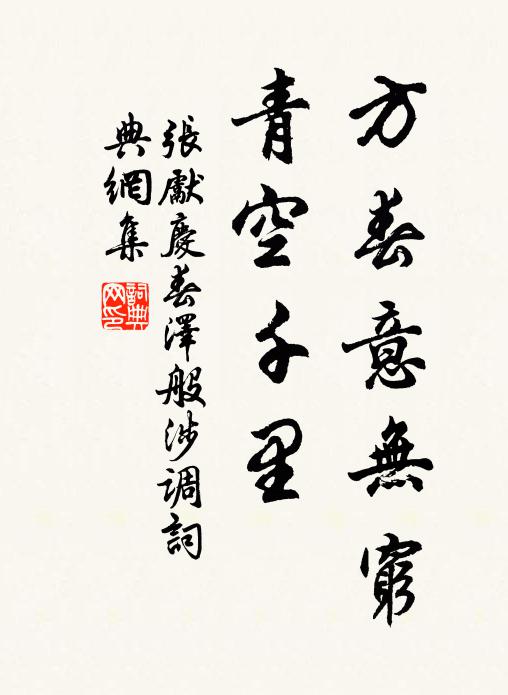 方春意無窮
青空千里
張獻慶春澤般涉調詞
典網集
詞典网印